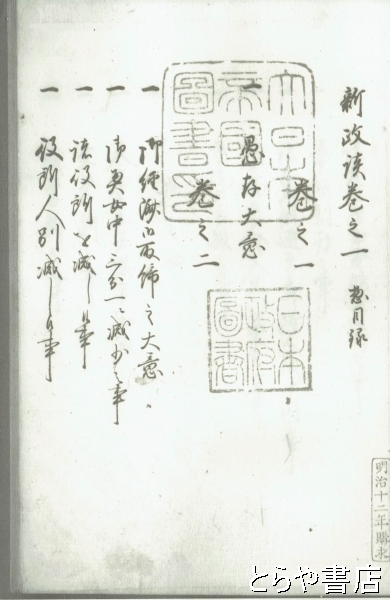 新政談巻之一 惣目録
巻之一
一 愚存大意
巻之二
一 御経済御取締之大意
一 御奥女中三分一ニ減少之事
一 諸役所を減し候事
一 役所人別減し候事
大日本帝國圖書印
日本政府圖書
明治十二年購求
とらや書店